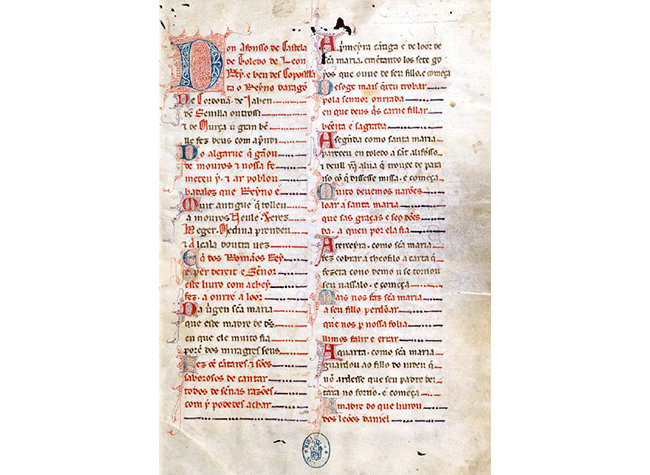 Don Afonsso de Castela
de Toledo de Leon
Rey. e ben des Conpostela
ta o Reyno daragõ
De Cordoua. de Jahen
de Seuilla outrossi
e de Murça u gran bẽ
lle fez deus com apridi
Do algarue q̃ gãou
de mouros e nossa fe
meteu y. e ar poblou
badalloz que Reyno e
Muit antigue q̃ tolleu
a mouros Neule. Xeres
Beger. Medina prendeu
e Alcala doutra uez
E q̃ dos Romãos Rey
e per dereit e Sennor
este liuro com achey
fez. a onrr e a loor
Da uirgen sc̃a maria
que este madre de ds̃
en que ele muito fia
porẽ dos miragres seus
Fez cãtares e sões
saborosos de cantar
todos de sennas razões
com y podedes achar
A primeyra cãtiga e de loor de
sc̃a maria. emẽtando los sete go
yos que ouue de seu fillo. e começa
Desoge mais q̃reu trobar
pola sennor onrrada
en que deus q̃s carne fillar
bẽeita e sagrada
A segũda como santa maria
pareceu en toledo a sãt alifonsso
so cõ q̃ dissesse missa. e começa
Muito deuemos uarões
loar a santa maria
que sas graças e seꝯ dões
da. a quen por ela fia
A terceyra. como sc̃a maria
fez cobrar a theofilo a carta q̃
fezera cono demo u se tornou
seu uassalo. e começa
Mais nos faz sc̃a maria
a seu fillo perdõar
que nos p̱ nossa folia
llimos falir e errar
A quarta. como sc̃a maria
guardou ao fillo do iudeu q̃
nõ ardesse que seu padre dei
tara no forno. e começa
A madre do que liurou
dos leões daniel